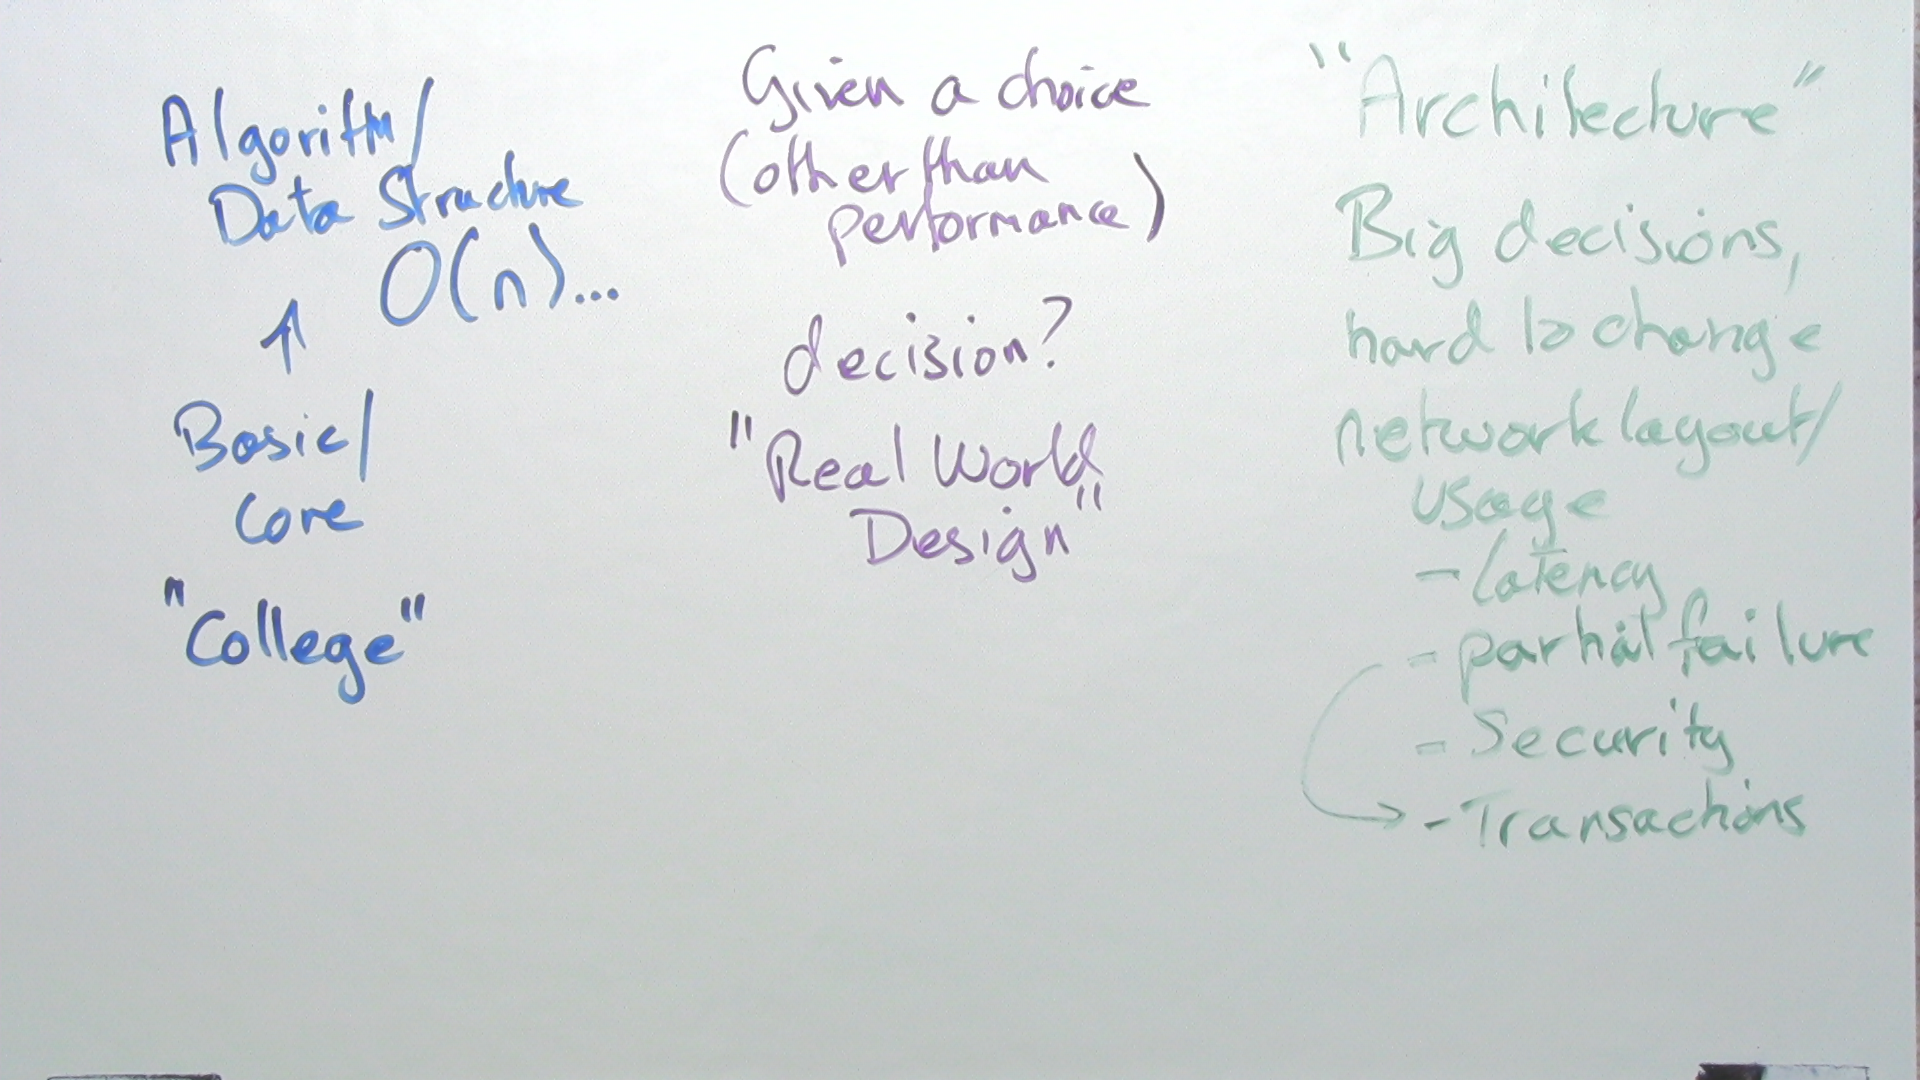 Algorithm/
Data Structure
O(n)...
Basic/
Core
"College"
Given a choice
(other than
performance)
decision?
"Real World
Design"
"Architecture"
Big decisions,
hard to change
network layout/
usage
- latency
- partial failure
- Security
- Transactions